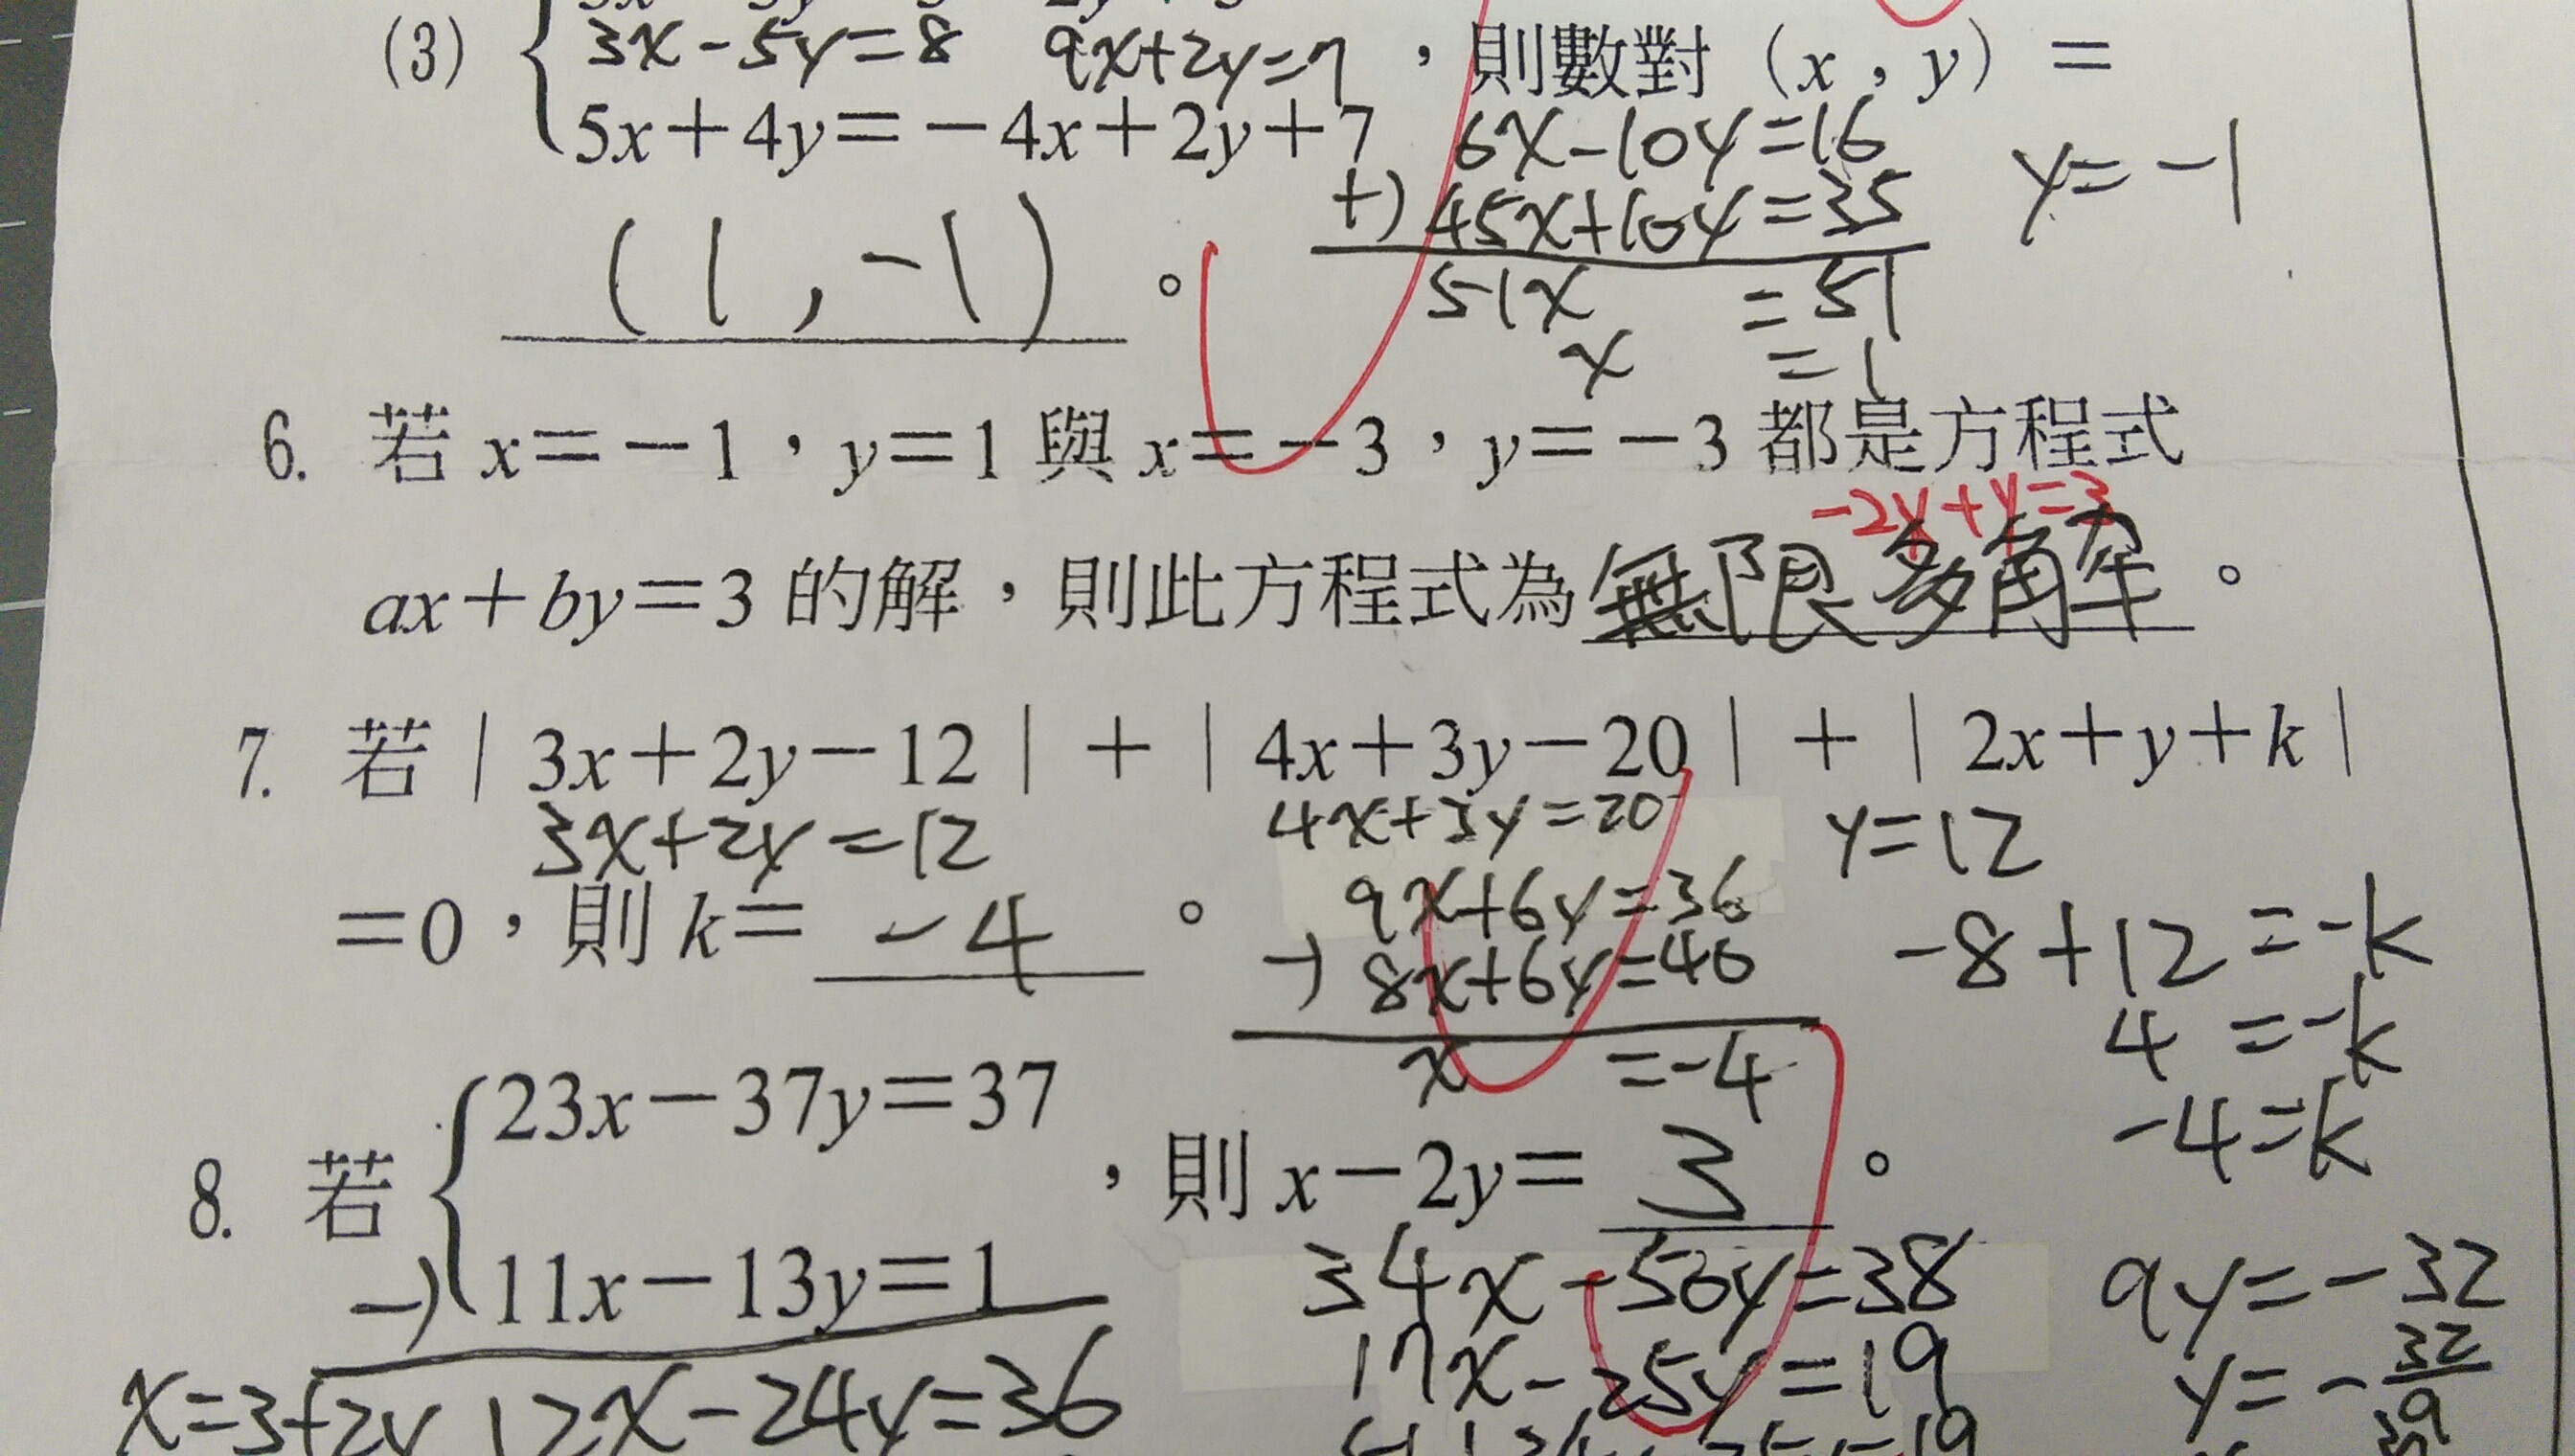 (3) 3x-5y=8 9x+2y=7 ,則數對(x,y)=
5x+4y=-4x+2y+7
6x-10y=16
+) 45x+10y=35
51x =51
x =1
y=-1
(1,-1)。
6. 若x=-1,y=1與x=-3,y=-3都是方程式
-2x+y=3
ax+by=3的解,則此方程式為無限多解。
7. 若|3x+2y-12|+|4x+3y-20|+|2x+y+k|
3x+2y=12 4x+3y=20 y=12
=0,則k= -4 。
9x+6y=36
-) 8x+6y=40
x =-4
-8+12=-k
4=-k
-4=k
8. 若 23x-37y=37
,則x-2y= 3 。
-) 11x-13y=1
x=3+2y 12x-24y=36
34x-50y=38
17x-25y=19
9y=-32
y=-32/9